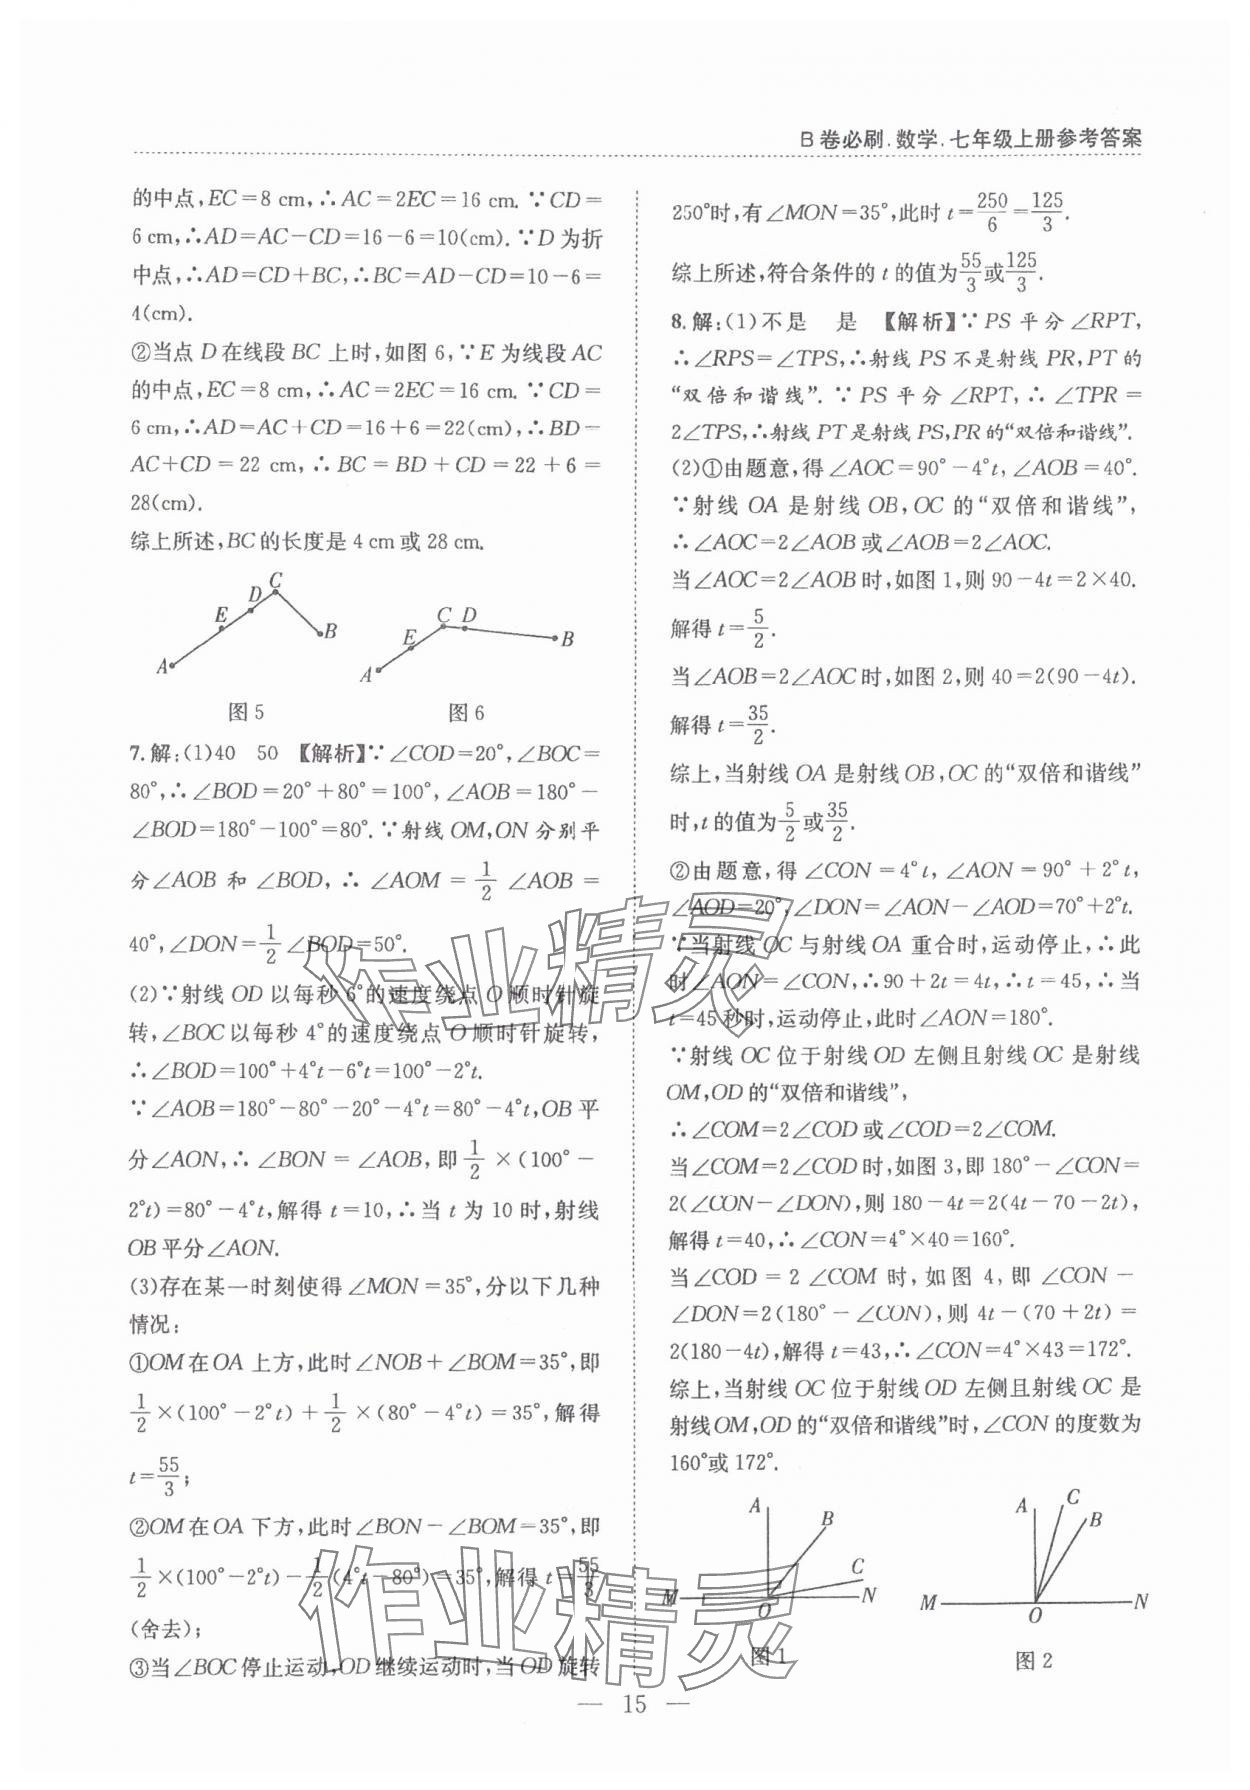 B卷必刷.数学.七年级上册参考答案
的中点,EC=8 cm,∴AC=2EC=16 cm.∵CD=
6 cm,∴AD=AC-CD=16-6=10(cm).∵D为折
中点,∴AD=CD+BC,∴BC=AD-CD=10-6=
4(cm).
②当点D在线段BC上时,如图6,∵E为线段AC
的中点,EC=8 cm,∴AC=2EC=16 cm.∵CD=
6 cm,∴AD=AC+CD=16+6=22(cm),∴BD-
AC+CD=22 cm,∴BC=BD+CD=22+6=
28(cm).
综上所述,BC的长度是4 cm或28 cm.
A E D C B
A E C D B
图5 图6
7.解:(1)40 50 【解析】∵∠COD=20°,∠BOC=
80°,∴∠BOD=20°+80°=100°,∠AOB=180°-
∠BOD=180°-100°=80°.∵射线OM,ON分别平
分∠AOB和∠BOD,∴∠AOM=1/2∠AOB=
40°,∠DON=1/2∠BOD=50°.
(2)∵射线OD以每秒6°的速度绕点O顺时针旋
转,∠BOC以每秒4°的速度绕点O顺时针旋转,
∴∠BOD=100°+4°t-6°t=100°-2°t.
∵∠AOB=180°-80°-20°-4°t=80°-4°t,OB平
分∠AON,∴∠BON=∠AOB,即1/2×(100°-
2°t)=80°-4°t,解得t=10,∴当t为10时,射线
OB平分∠AON.
(3)存在某一时刻使得∠MON=35°,分以下几种
情况:
①OM在OA上方,此时∠NOB+∠BOM=35°,即
1/2×(100°-2°t)+1/2×(80°-4°t)=35°,解得
t=55/3;
②OM在OA下方,此时∠BON-∠BOM=35°,即
1/2×(100°-2°t)-1/2(4°t-80°)=35°,解得t=55/3
(舍去);
③当∠BOC停止运动,OD继续运动时,当OD旋转
250°时,有∠MON=35°,此时t=250/6=125/3.
综上所述,符合条件的t的值为55/3或125/3.
8.解:(1)不是 是 【解析】∵PS平分∠RPT,
∴∠RPS=∠TPS,∴射线PS不是射线PR,PT的
“双倍和谐线”.∵PS平分∠RPT,∴∠TPR=
2∠TPS,∴射线PT是射线PS,PR的“双倍和谐线”.
(2)①由题意,得∠AOC=90°-4°t,∠AOB=40°.
∵射线OA是射线OB,OC的“双倍和谐线”,
∴∠AOC=2∠AOB或∠AOB=2∠AOC.
当∠AOC=2∠AOB时,如图1,则90-4t=2×40.
解得t=5/2.
当∠AOB=2∠AOC时,如图2,则40=2(90-4t).
解得t=35/2.
综上,当射线OA是射线OB,OC的“双倍和谐线”
时,t的值为5/2或35/2.
②由题意,得∠CON=4°t,∠AON=90°+2°t,
∠AOD=20°,∠DON=∠AON-∠AOD=70°+2°t.
∵当射线OC与射线OA重合时,运动停止,∴此
时∠AON=∠CON,∴90+2t=4t,∴t=45,∴当
t=45秒时,运动停止,此时∠AON=180°.
∵射线OC位于射线OD左侧且射线OC是射线
OM,OD的“双倍和谐线”,
∴∠COM=2∠COD或∠COD=2∠COM.
当∠COM=2∠COD时,如图3,即180°-∠CON=
2(∠CON-∠DON),则180-4t=2(4t-70-2t),
解得t=40,∴∠CON=4°×40=160°.
当∠COD=2∠COM时,如图4,即∠CON-
∠DON=2(180°-∠CON),则4t-(70+2t)=
2(180-4t),解得t=43,∴∠CON=4°×43=172°.
综上,当射线OC位于射线OD左侧且射线OC是
射线OM,OD的“双倍和谐线”时,∠CON的度数为
160°或172°.
A B C M O N
A C B M O N
图1 图2
作业精灵
作业精灵
— 15 —